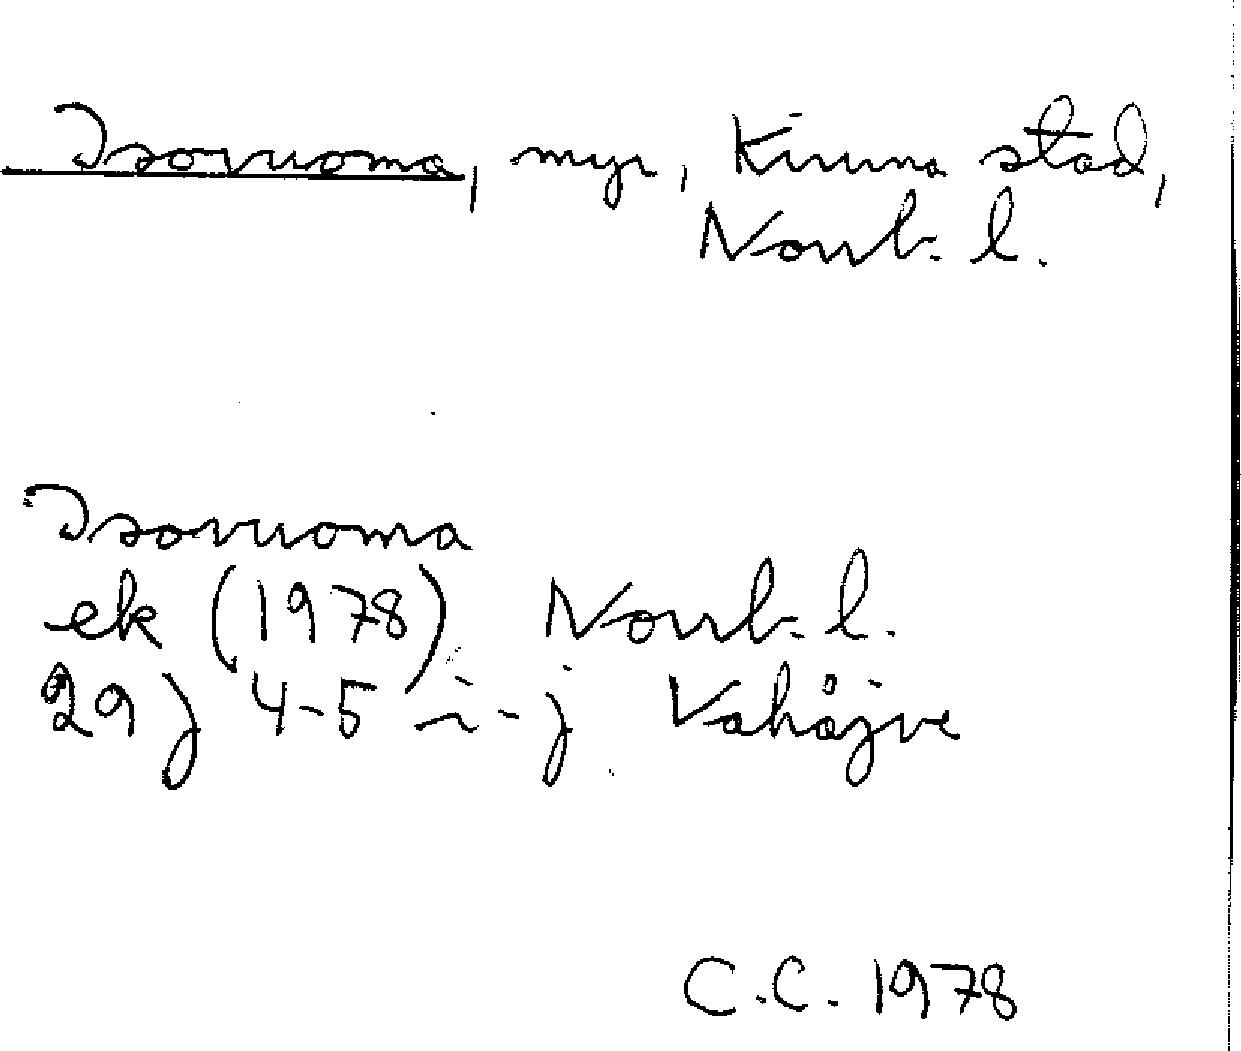 Isovuoma, myr, Kiruna stad,
Norrb. l.
Isovuoma
ek (1978) Norrb. l.
29 J 4-5 i-j Vahåjve
C.C. 1978